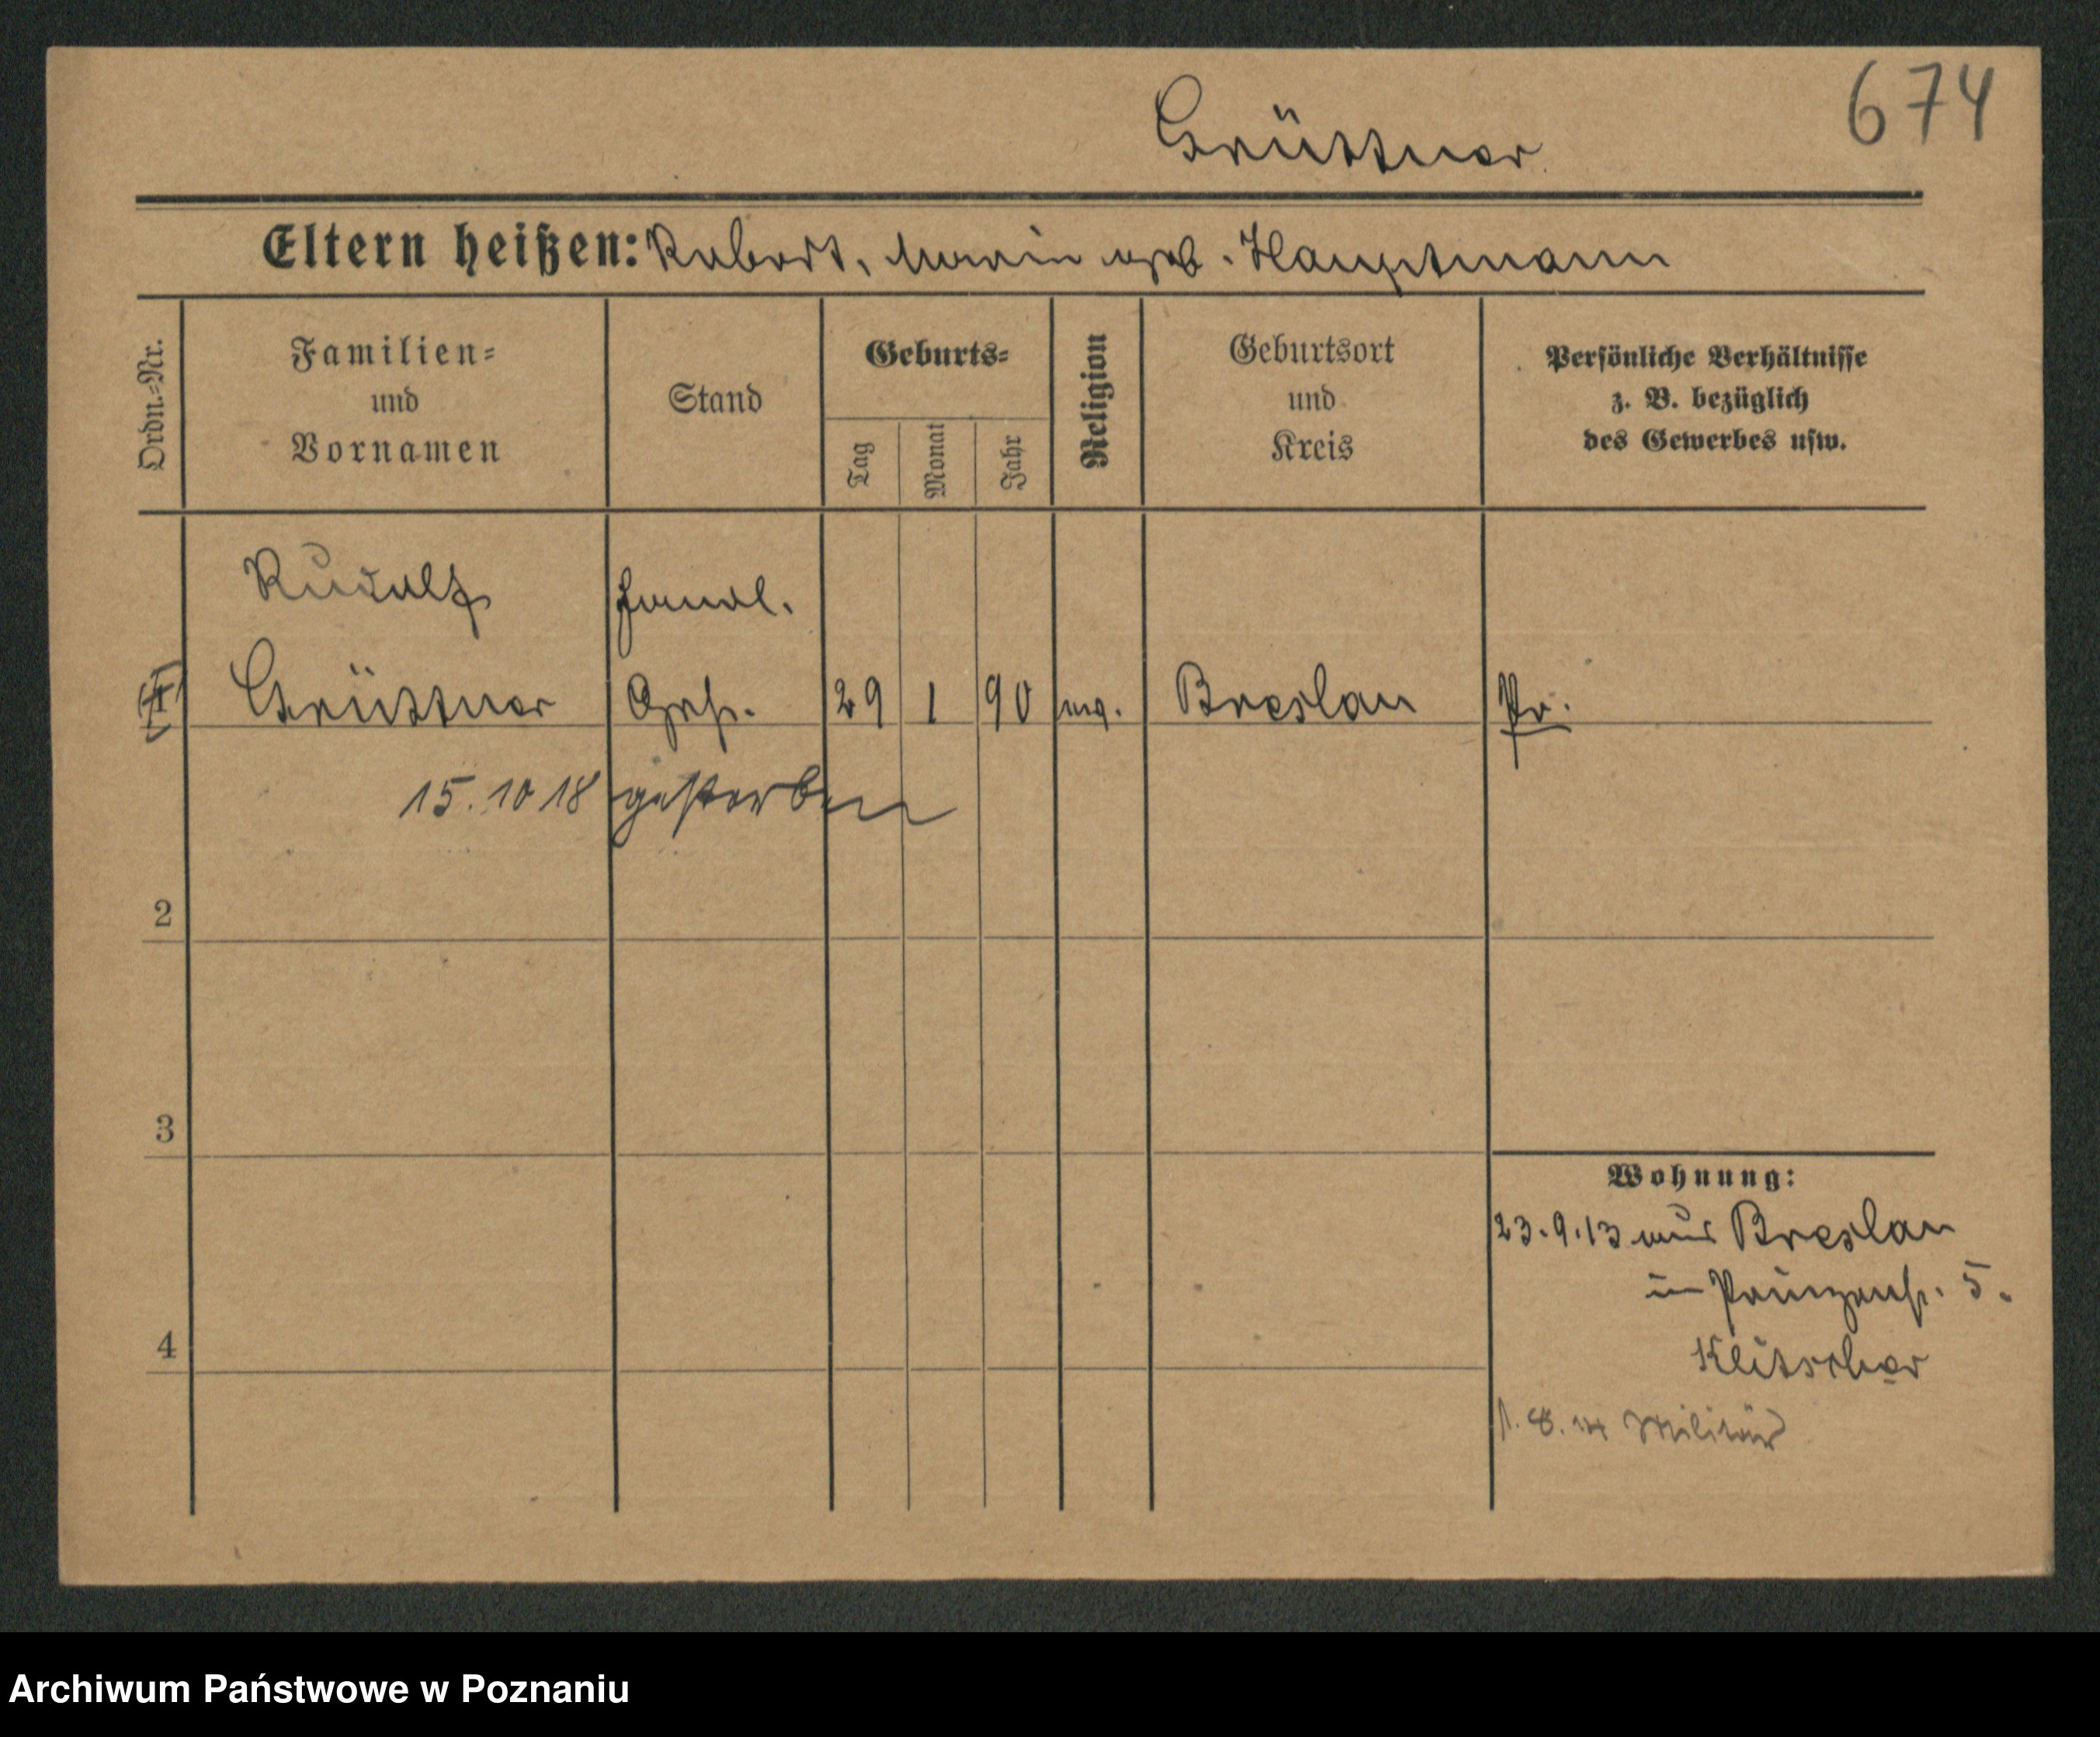 674
Grüttner
Eltern heißen: Robert, Marie geb. Hauptmann
Ordn.-Nr.
Familien-
und
Vornamen
Stand
Geburts-
Tag
Monat
Jahr
Religion
Geburtsort
und
Kreis
Persönliche Verhältnisse
z. B. bezüglich
des Gewerbes usw.
Rudolf Handl.
1 Grüttner Geh. 29 1 90 Breslau Pr.
15.10 18 gestorben
2
3
Wohnung:
23.9.13 aus Breslau
in 5.
4
Klitscher
1.8.14 Militär
Archiwum Państwowe w Poznaniu